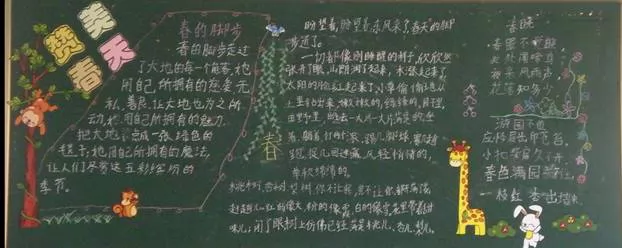 赞美
春天
春的脚步
春的脚步走过
了大地的每一个角落,他
用自己所拥有的
私、善良,让大地也为之所
动,他用自己所拥有的魅力,
把大地
毯子,他用自己所拥有的魔法,
让人们尽赏这五彩缤纷的
季节。
春
盼望着,盼望着,东风来了,春天的脚
步近了。
一切都像刚睡醒的样子,欣欣然
张开了眼,山朗润了起来,水涨起来了
太阳的脸红起来了,小草偷偷地从
土里钻出来,嫩嫩的,绿绿的,园子里,
田野里,瞧去一大片一大片满是的。坐
着,躺着,打两个滚,踢几脚球,赛几趟
跑,捉几回迷藏。风轻悄悄的,
草软绵绵的。
桃树、杏树、梨树,你不让我,我不让你,都开满
红的像火,粉的像霞,白的像雪。花里带着甜
味儿;闭了眼,树上仿佛已经满是桃儿、杏儿、梨儿
春晓
春眠不觉晓
处处闻啼鸟
夜来风雨声
花落知多少
游园不值
应怜屐齿印苍苔
小扣柴扉久不开
春色满园
一枝红杏出墙来